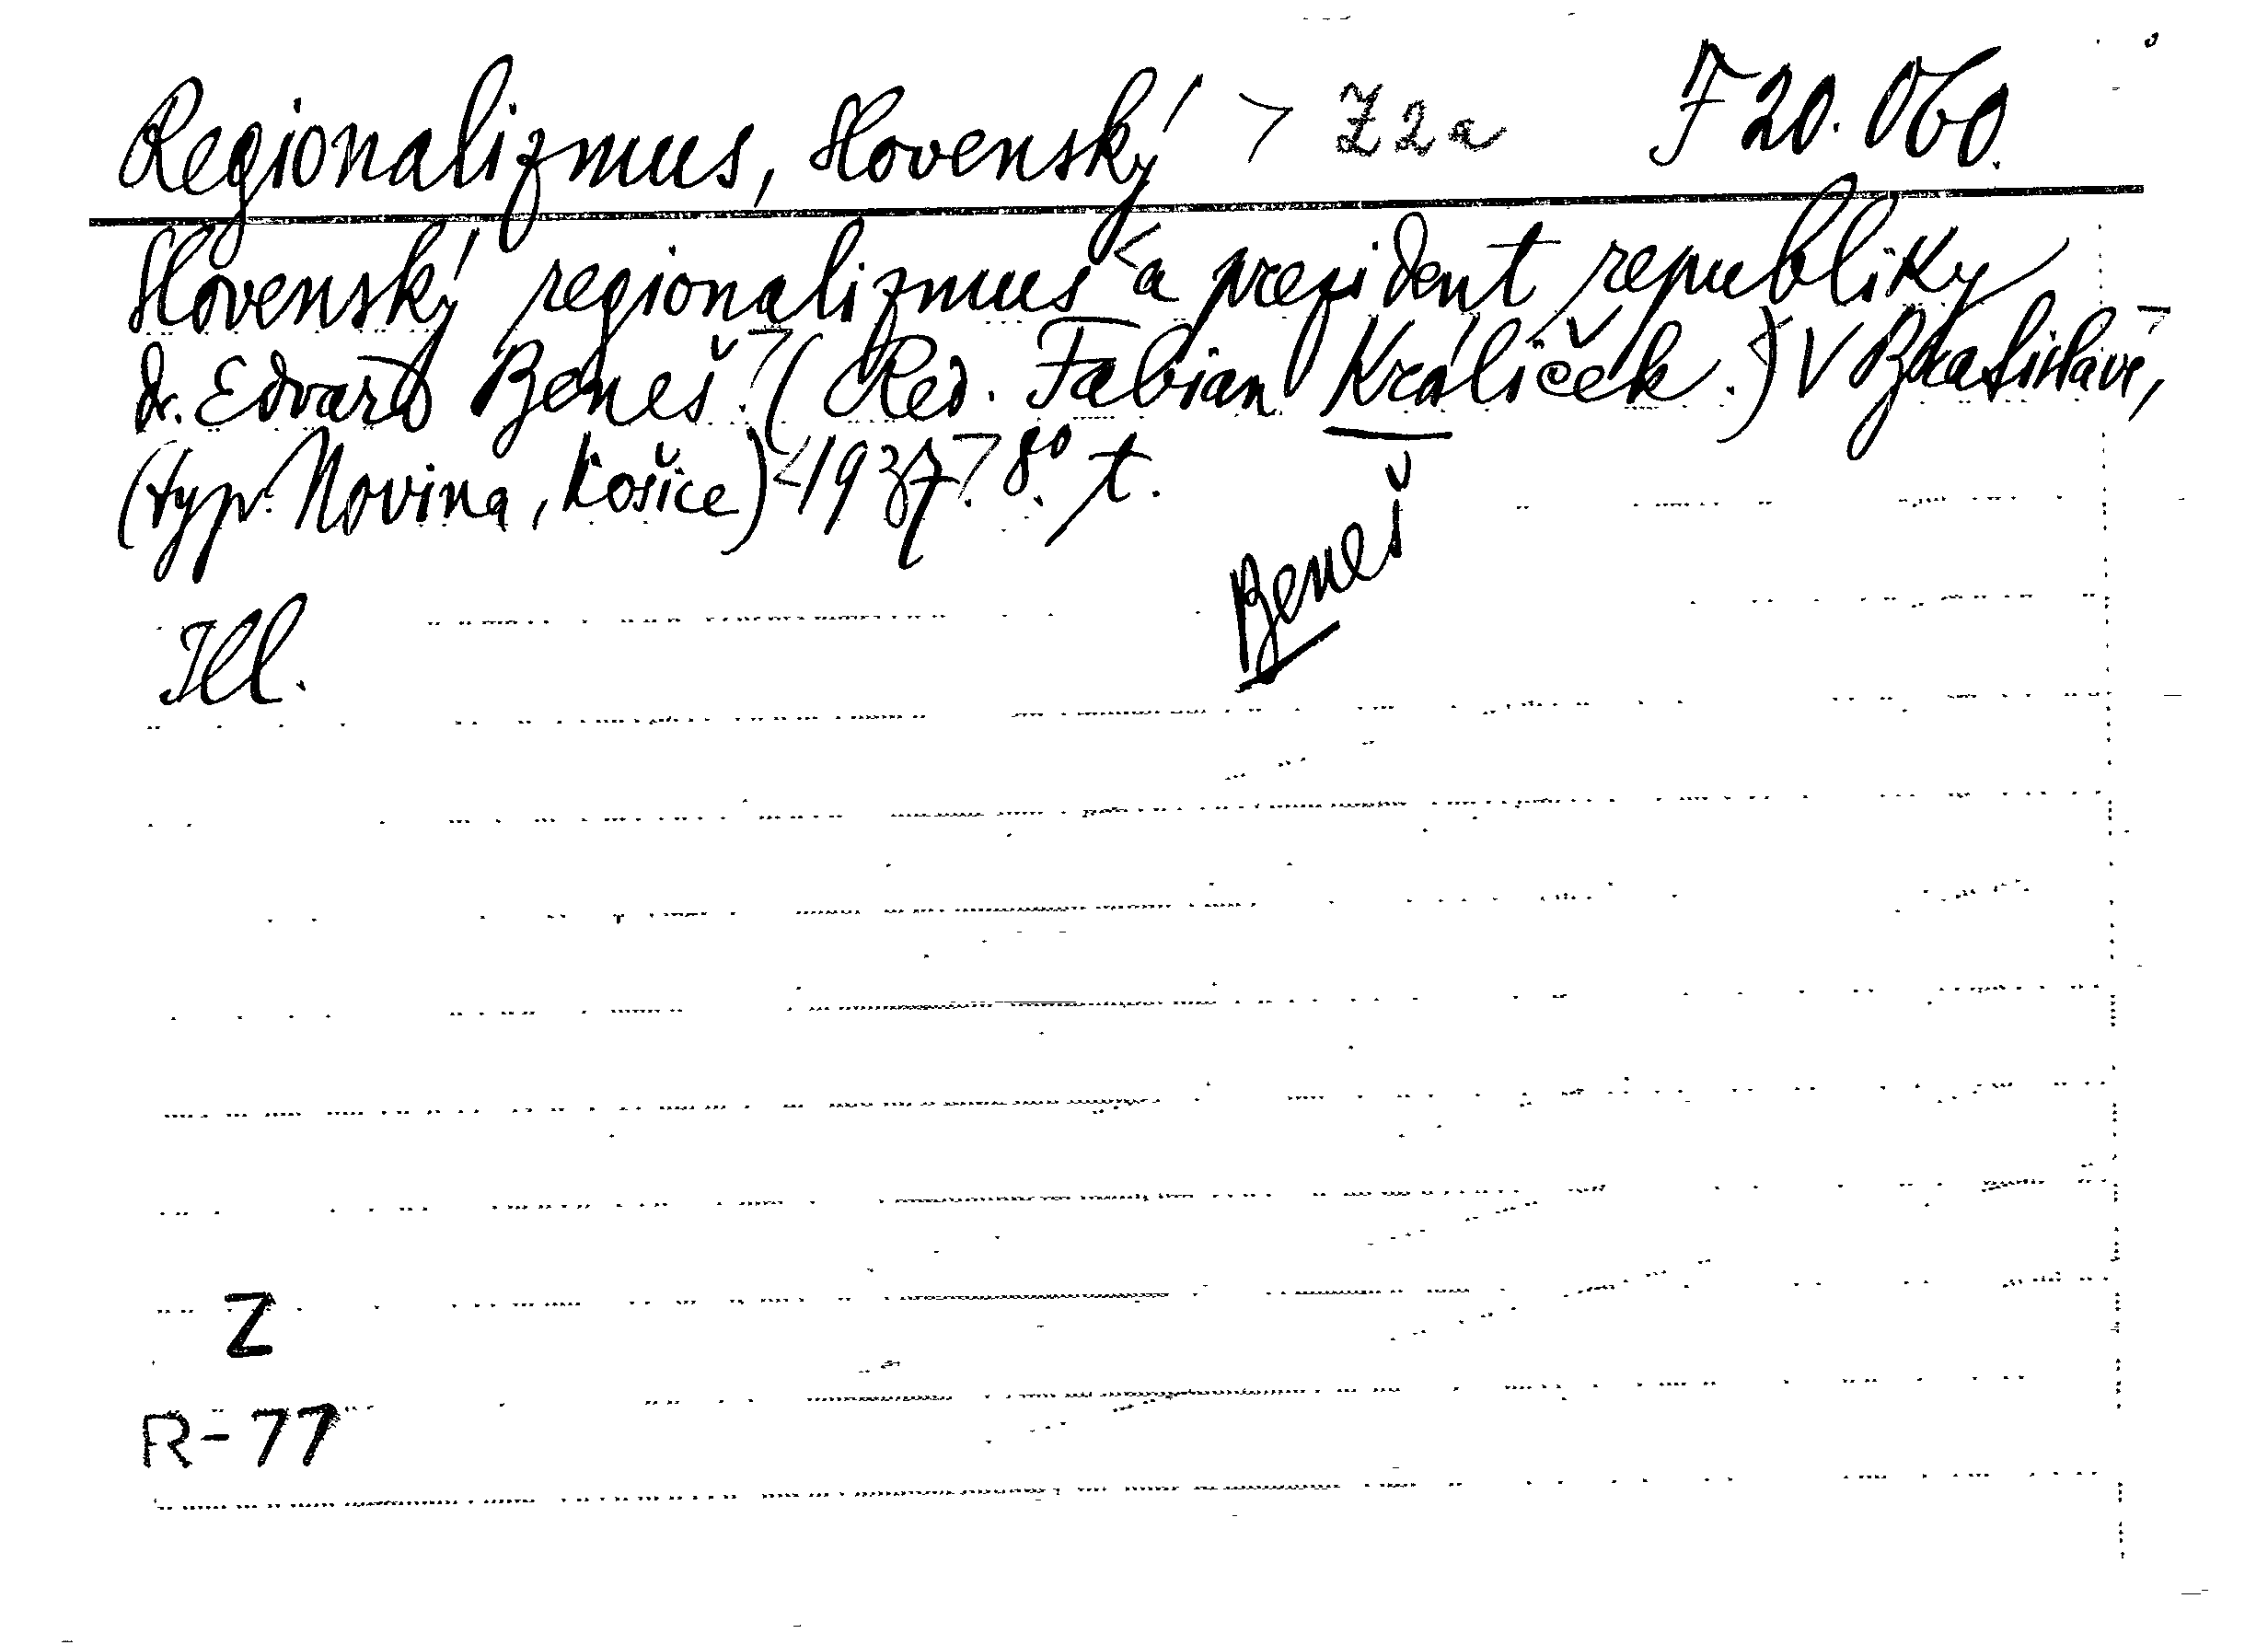 Regionalizmus, Slovenský > Z2a F 20.060.
Slovenský regionalizmus < a prezident republiky
dr. Edvard Beneš. > (Red. Fabian Králiček.) < V Bratislave, >
(typ. Novina, Košice) < 1937. > 8°. t.
Beneš
Ill.
Z
R-77